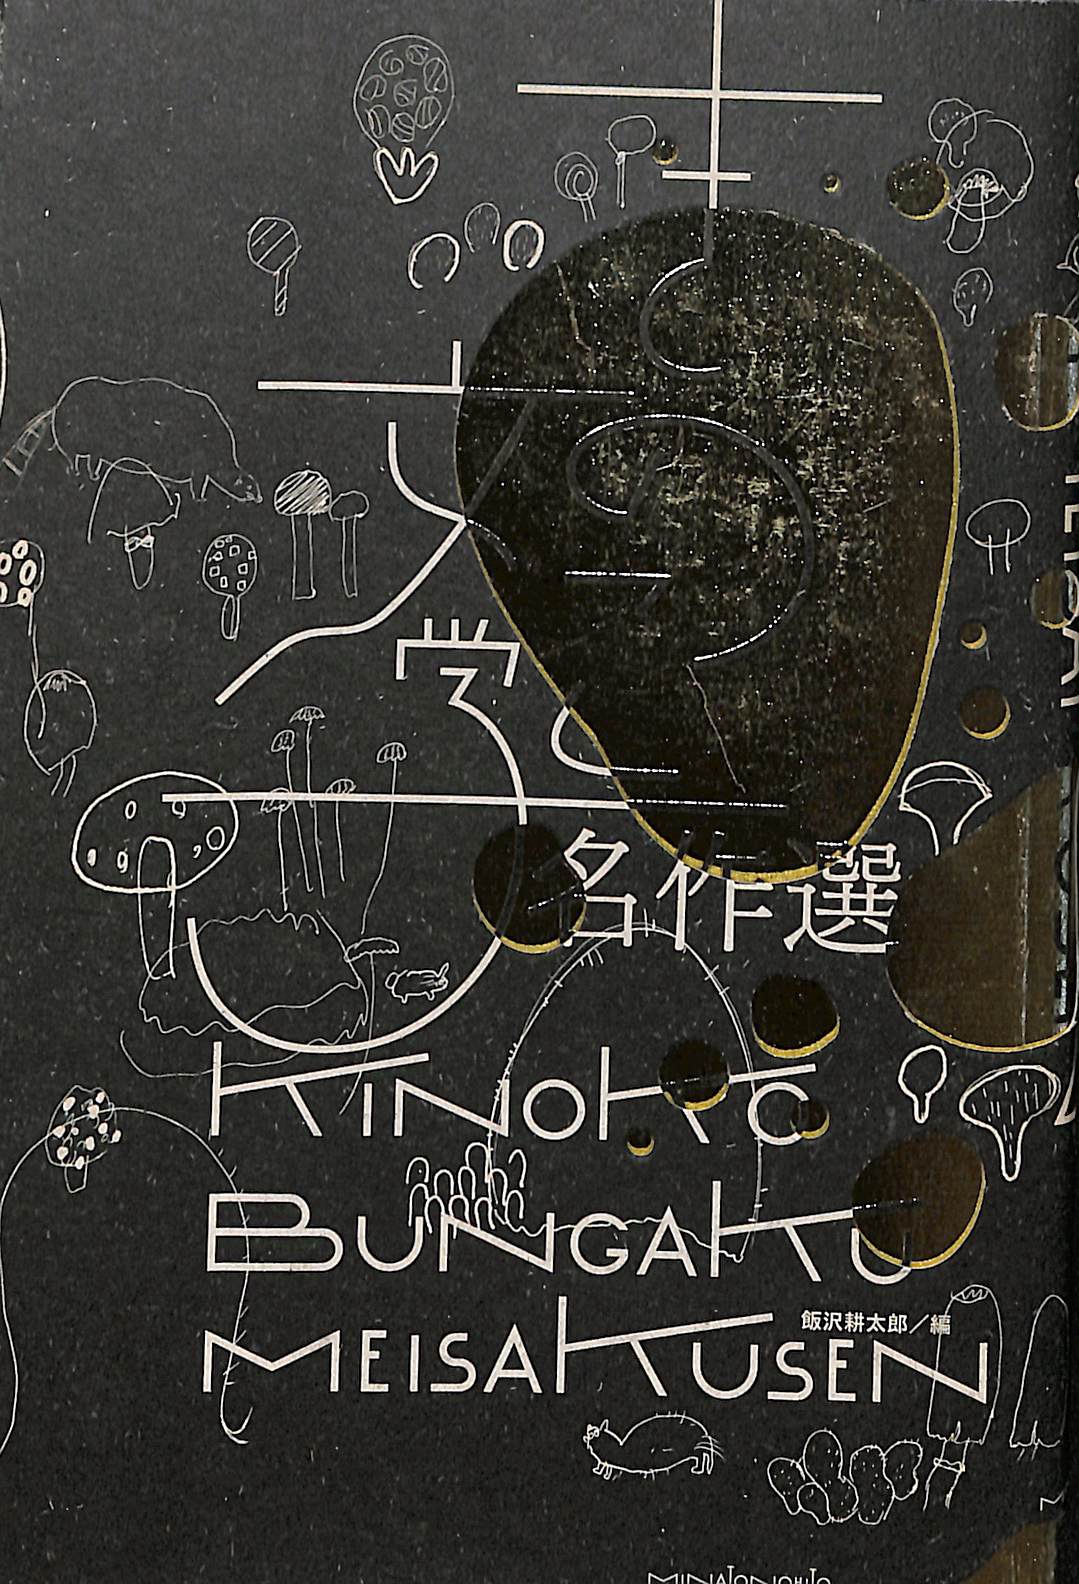 きのこ
文学
名作選
KINOKO
BUNGAKU
MEISAKUSEN
飯沢耕太郎／編
MINATONOHITO